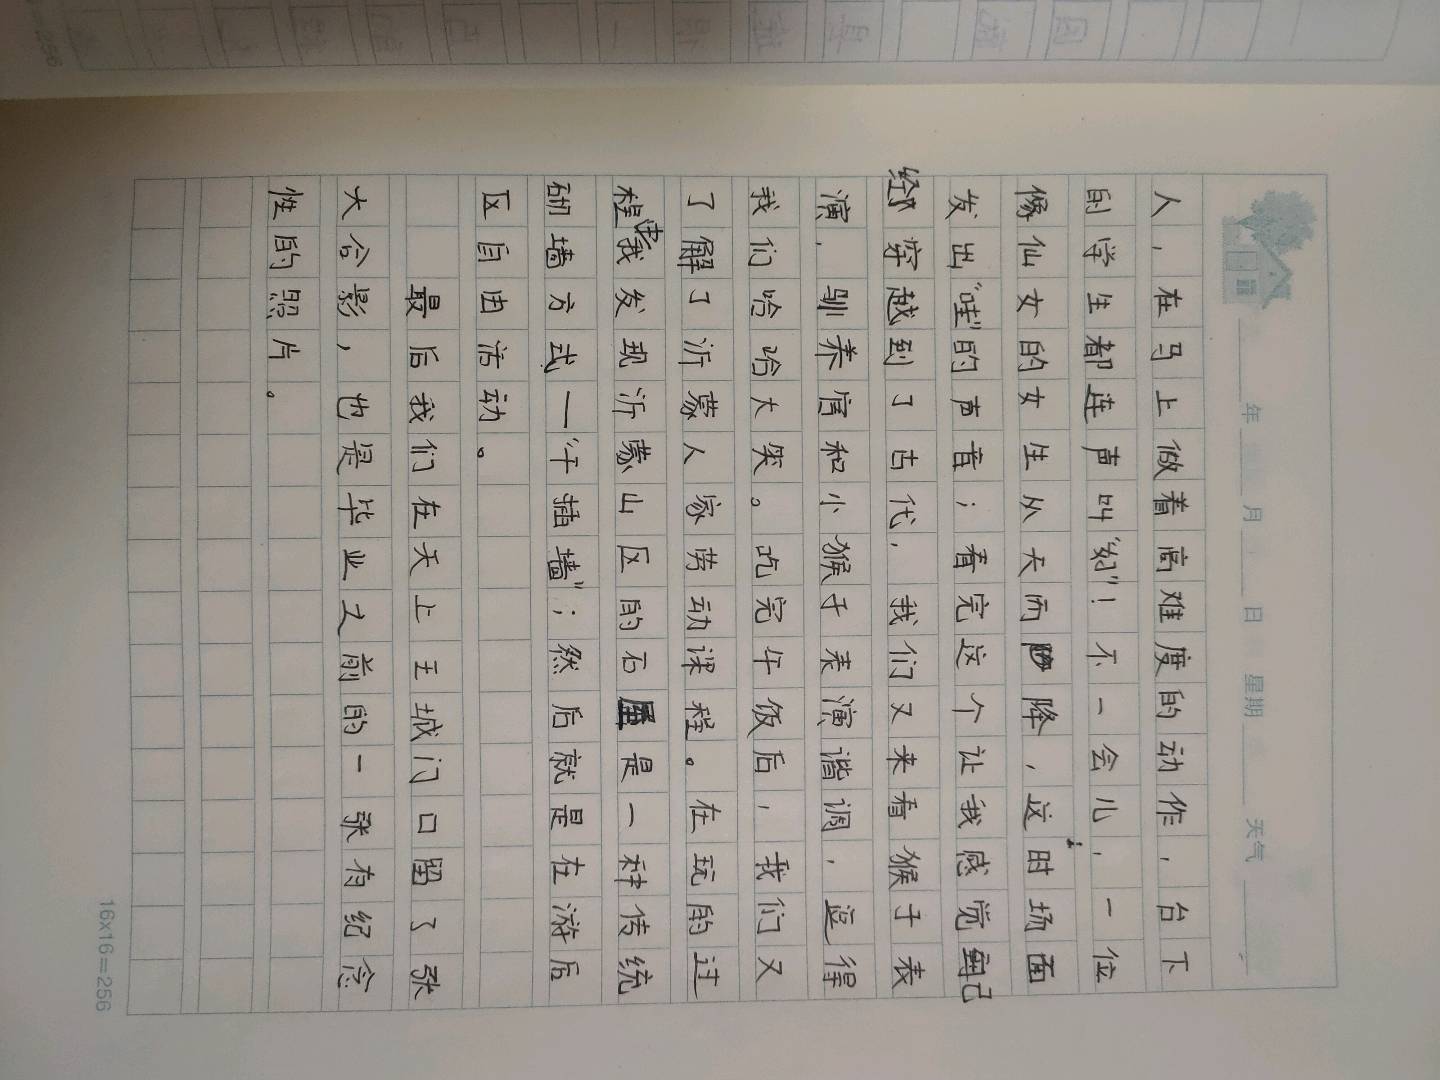 年 月 日 星期 天气
人，在马上做着高难度的动作，台下
的学生都连声叫“好”！不一会儿，一位
像仙女的女生从天而降，这时场面
发出“哇”的声音；看完这个让我感觉自己
经穿越到了古代，我们又来看猴子表
演，驯养官和小猴子表演谐调，逗得
我们哈哈大笑。吃完午饭后，我们又
了解了沂蒙人家劳动课程。在玩的过
程中我发现沂蒙山区的石屋是一种传统
砌墙方式—“干插墙”；然后就是在游后
区自由活动。
最后我们在天上王城门口留了张
大合影，也是毕业之前的一张有纪念
性的照片。
16x16=256